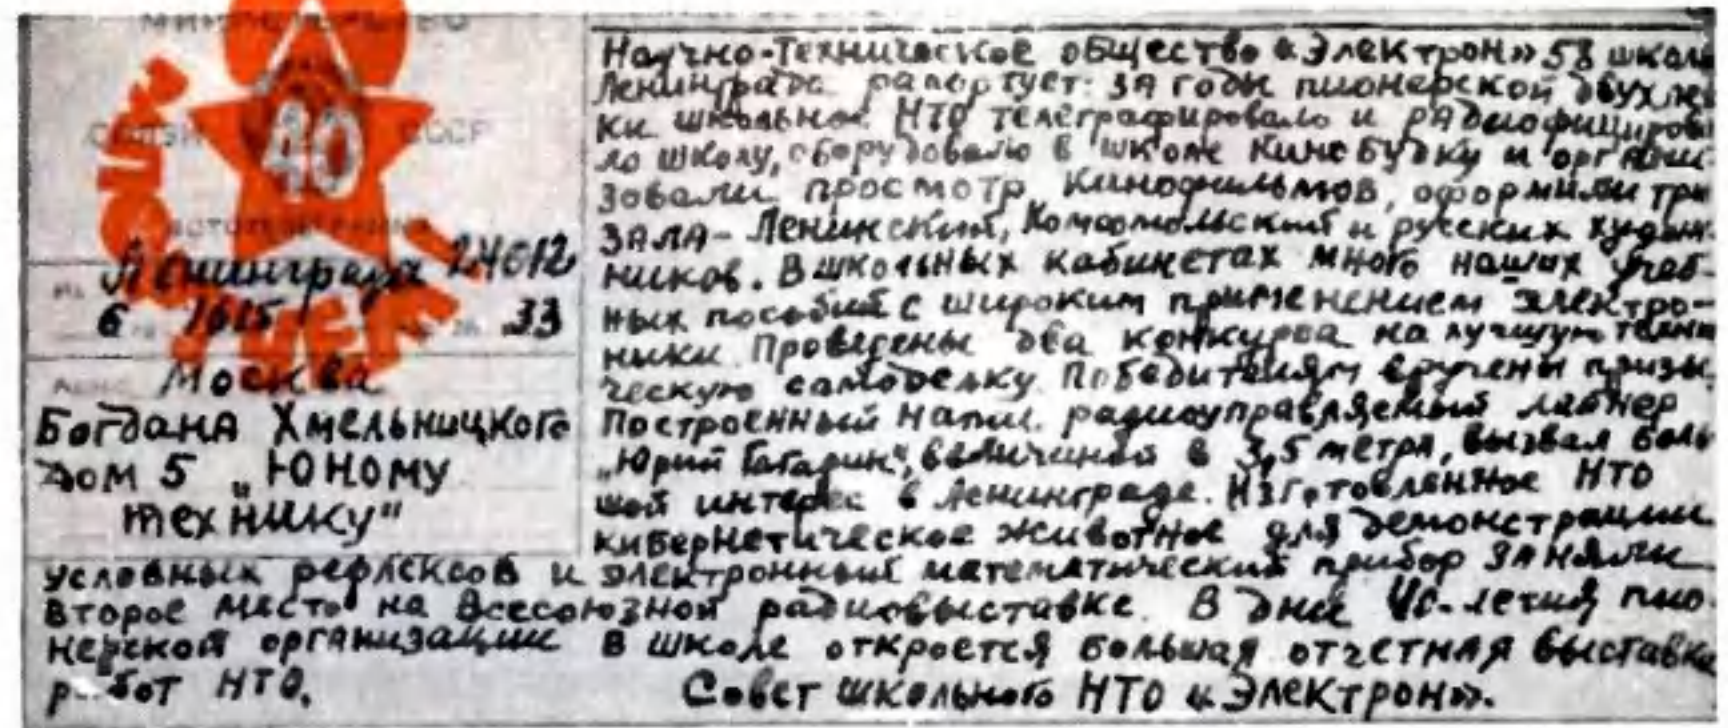 МИНИСТЕРСТВО
СВЯЗИ СССР
40
ФОТОТЕЛЕГРАММА
Из Ленинграда 24612
6 1615 33
Адрес Москва
Богдана Хмельницкого
дом 5 „Юному
технику"
Научно-техническое общество «Электрон» 58 школы
Ленинграда рапортует: за годы пионерской двухлет
ки школьное НТО телеграфировало и радиофицирова
ло школу, оборудовало в школе кинобудку и органи
зовали просмотр кинофильмов, оформили три
зала - Ленинский, Комсомольский и русских худож-
ников. В школьных кабинетах много наших учеб-
ных пособий с широким применением электро-
ники. Проведены два конкурса на лучшую техни
ческую самоделку. Победителям вручены призы.
Построенный нами радиоуправляемый лайнер
„Юрий Гагарин", величиной в 3,5 метра, вызвал боль
шой интерес в Ленинграде. Изготовленное НТО
кибернетическое животное для демонстрации
условных рефлексов и электронный математический прибор заняли
второе место на Всесоюзной радиовыставке. В дни 40-летия пио-
нерской организации в школе откроется большая отчетная выставка
работ НТО.
Совет школьного НТО «Электрон».